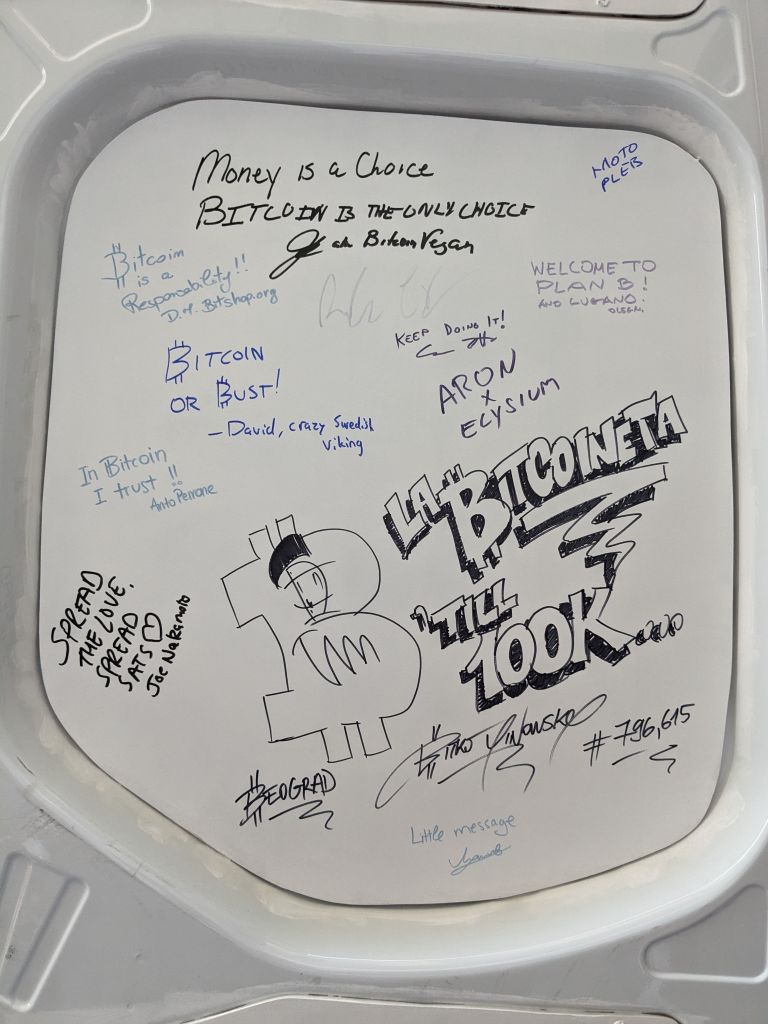 Money is a Choice
BITCOIN IS THE ONLY CHOICE
aka Bitcoin Vegan
MOTO
PLEB
Bitcoin
is a
Responsability!!
D.M. Bitshop.org
WELCOME TO
PLAN B!
AND LUGANO.
KEEP DOING IT!
BITCOIN
OR BUST!
– David, crazy Swedish
Viking
ARON
x
ELYSIUM
In Bitcoin
I trust !!
Anto Perrone
LA BITCOINETA
'TILL
100K....
SPREAD
THE LOVE.
SPREAD
SATS ♡
Joe Nakamoto
BEOGRAD
#796,615
Little message